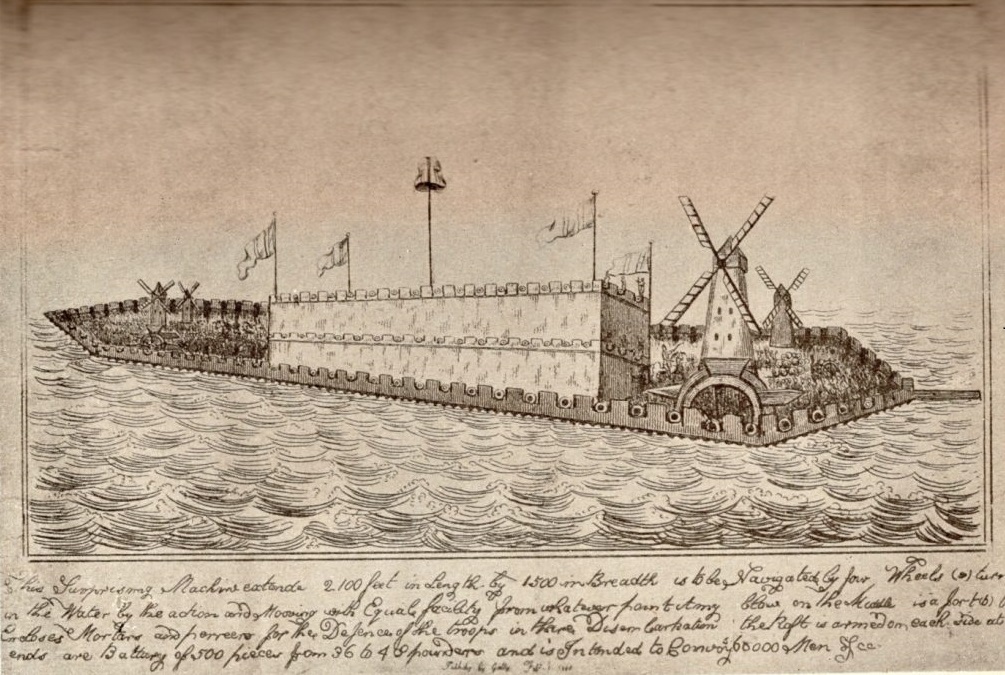 This Surprising Machine extende 2100 feet in Length by 1500 in Breadth is to be Navigated by four Wheels (a) turn
in the Water by the action and Moving with Equal facility from whatever point it my blow on the Middle is a fort (b)
Encloses Mortars and perreers for the Defence of the troops in there Disembarkation the Raft is armed on each side at
ends are Battary of 500 pieces from 36 to 48 pounders and is Intended to Convoy 60000 Men &cc.
Publish by